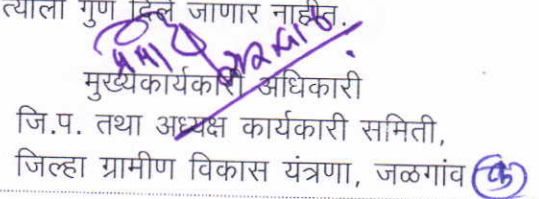 त्याला गुण दिले जाणार नाहीत.
मुख्यकार्यकारी अधिकारी
जि.प. तथा अध्यक्ष कार्यकारी समिती,
जिल्हा ग्रामीण विकास यंत्रणा, जळगांव क